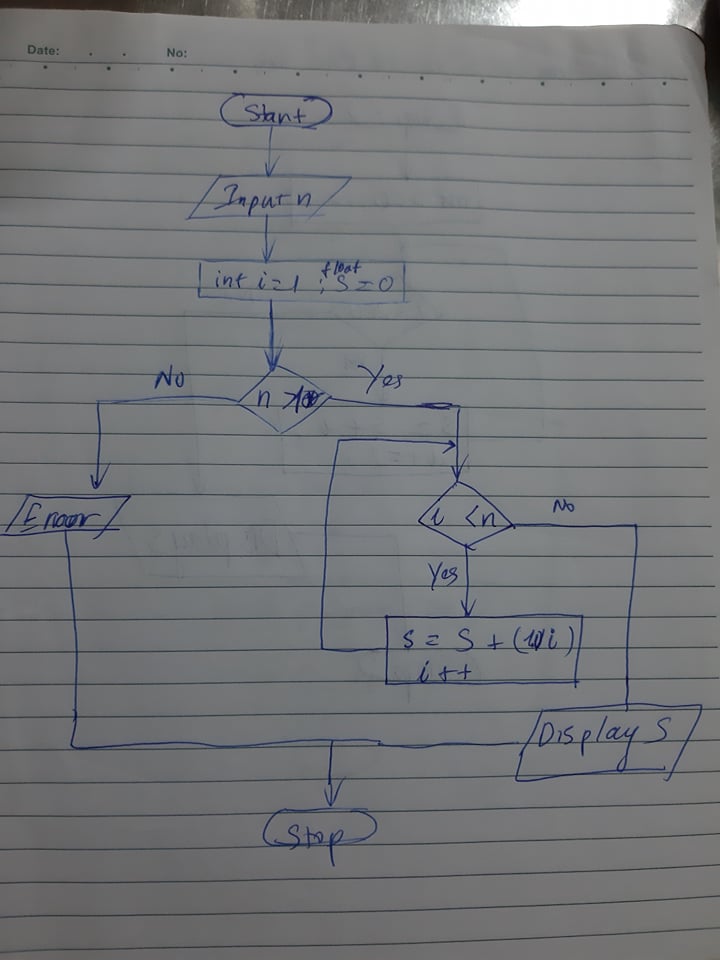 Date: . . No:
Start
Input n
int i=1 ; float S=0
No
Yes
n >
Error
i <n
No
Yes
S = S + (1/i)
i++
Display S
Stop